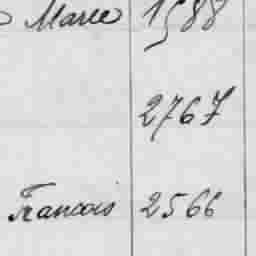 Marie 1588
2767
Francois 2566